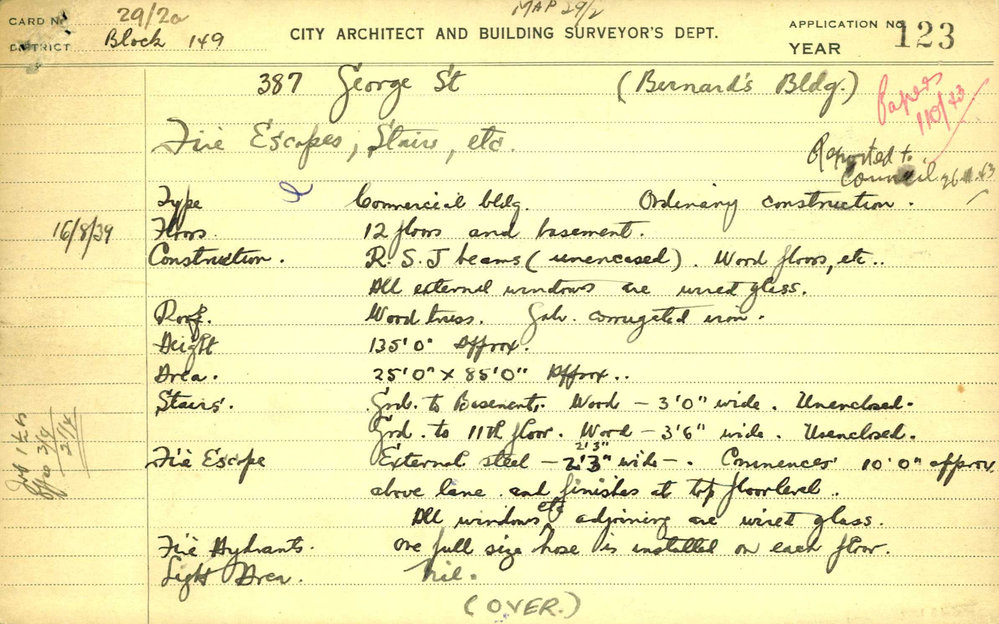 CARD No 29/2a
MAP 29/2
DISTRICT Block 149
CITY ARCHITECT AND BUILDING SURVEYOR'S DEPT.
APPLICATION No. 123
YEAR
387 George St (Bernard's Bldg.)
Papers 110/43
Fire Escapes, Stairs, etc.
Reported to
Council
Type Commercial bldg. Ordinary construction.
16/8/39 Floors. 12 floors and basement.
Construction. R.S.J beams (unencased). Wood floors, etc..
All external windows are wired glass.
Roof. Wood truss. Galv. corrugated iron.
Height 135'0" Approx.
Area. 25'0" x 85'0" Approx..
Stairs. Grd. to Basement. Wood - 3'0" wide. Unenclosed.
Grd. to 11th floor. Wood - 3'6" wide. Unenclosed.
2'3"
Fire Escape External steel - 2'3" wide -. Commences 10'0" approx.
above lane and finishes at top floor level..
All windows etc adjoining are wired glass.
Fire Hydrants. One full size hose is installed on each floor.
Light Area. Nil.
(OVER.)